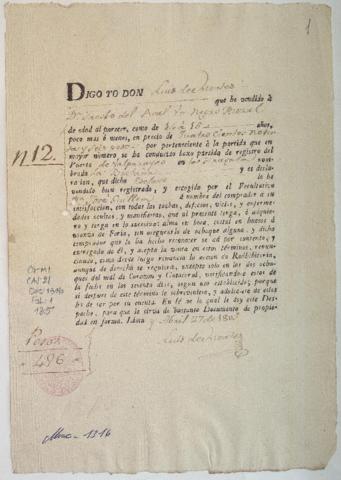 1
DIGO YO DON Luis de
que he vendido à
Dn. del Real Un Negro Bozal
de edad al parecer, como de 16 à 18 años,
poco mas ò menos, en precio de Quatro Cientos Noventa
y seis pesos por perteneciente à la partida que en
mayor número se ha conducido baxo partida de registro del
Puerto de Valparayso en la Fragata nom-
brada la y es decla-
racion, que dicho Esclavo
vendido bien registrado, y escogido por el Facultativo
Dn. Jose à nombre del comprador a su
satisfaccion, con todas las tachas, defectos, vicios, y enferme-
dades ocultas, y manifiestas, que al presente tenga, ò adquie-
ra y tenga en lo sucesivo: alma en boca, costal en huesos à
usanza de Feria, sin asegurarlo de achaque alguno, y dicho
comprador que lo ha hecho reconocer se da por contento, y
entregado de él, y acepta la venta en estos términos, renun-
ciando, como desde luego renuncia la accion de Redhibitoria,
aunque de derecho se requiera, excepto solo en los dos acha-
ques del mal de Corazon y Gotacoral, verificandose estos de
la fecha en los setenta dias, segun uso establecido; porque
si despues de este término le sobreviniera, y adoleciere de ellos
ha de ser por su cuenta. En fé de lo qual le doy este Des-
pacho, para que le sirva de bastante Documento de propie-
dad en forma. Lima y Abril 27 de
Luis de
n 12.
CO-M1
CAJ 21
DOC 1316
FOL. 1
185
Pesos
496
Mno - 1316